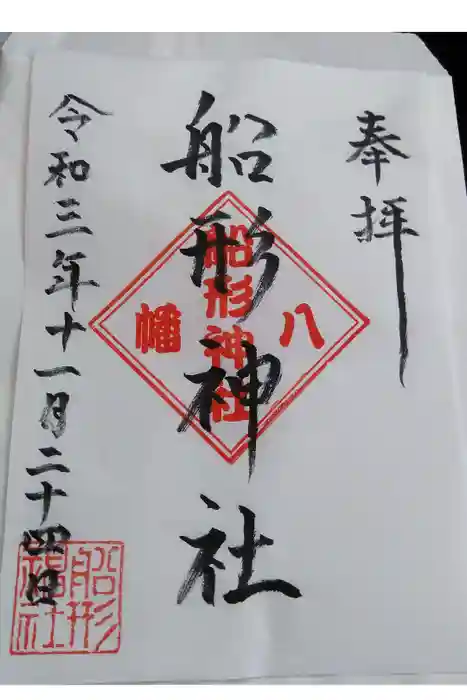 奉拝
船形神社
八幡
船形神社
令和三年十一月二十四日
船形
福社